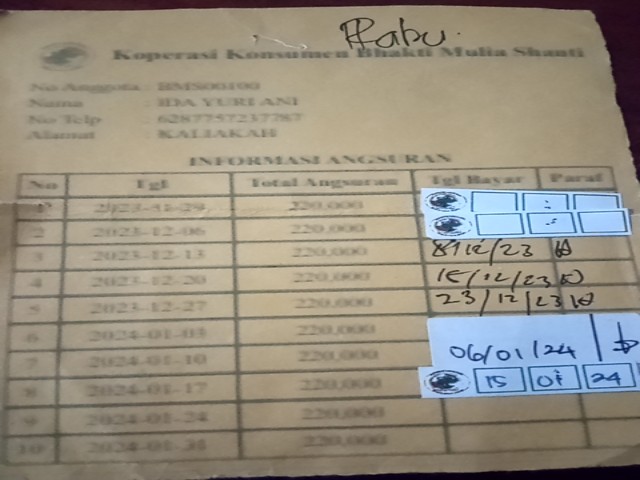 Rabu.
Koperasi Konsumen Bhakti Mulia Shanti
No Anggota : BMS00100
Nama : IDA YURI ANI
No Telp : 6287757237787
Alamat : KALIAKAH
INFORMASI ANGSURAN
No Tgl Total Angsuran Tgl Bayar Paraf
1 2023-11-29 220,000
2 2023-12-06 220,000
3 2023-12-13 220,000 /12/23
4 2023-12-20 220,000 15/12/23
5 2023-12-27 220,000 23/12/23
6 2024-01-03 220,000
7 2024-01-10 220,000 06/01/24
8 2024-01-17 220,000 15 01 24
9 2024-01-24 220,000
10 2024-01-31 220,000